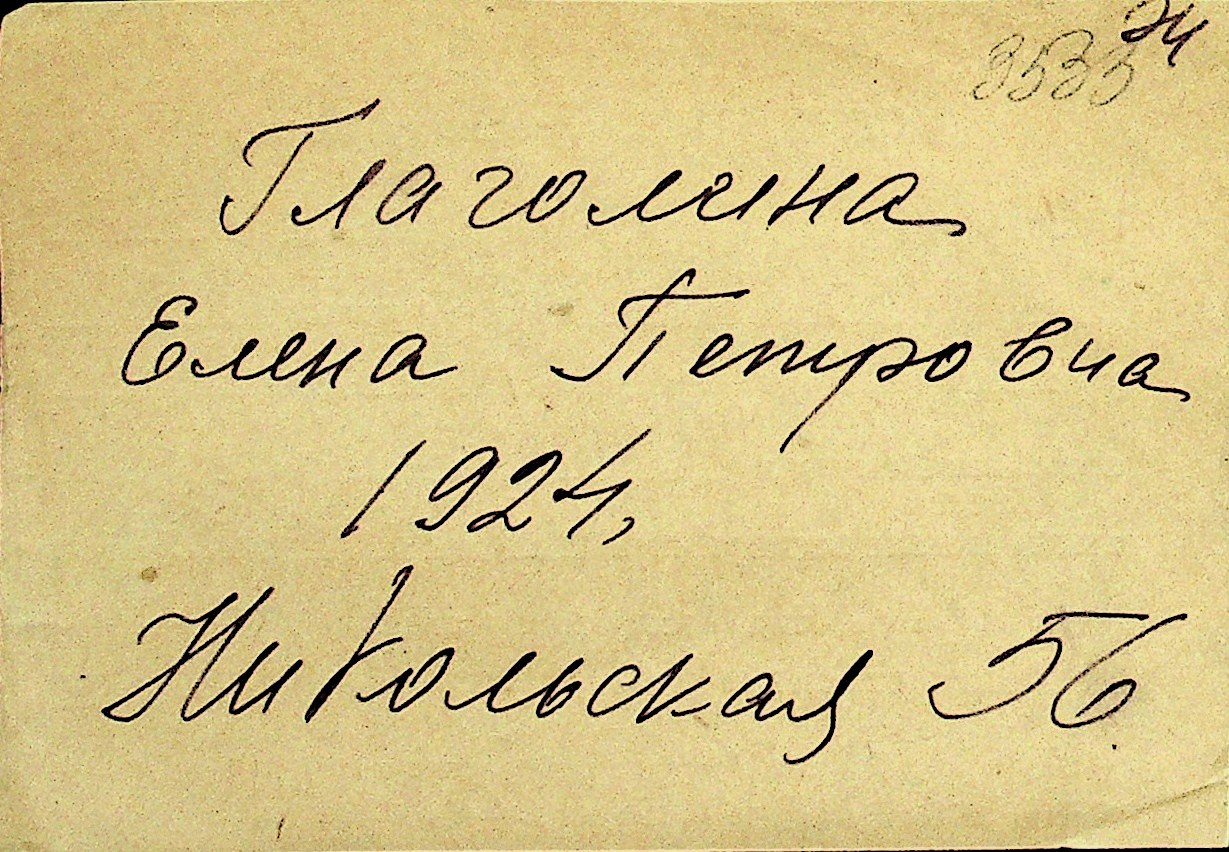 3533
Глаголина
Елена Петровна
1924,
Никольская 56